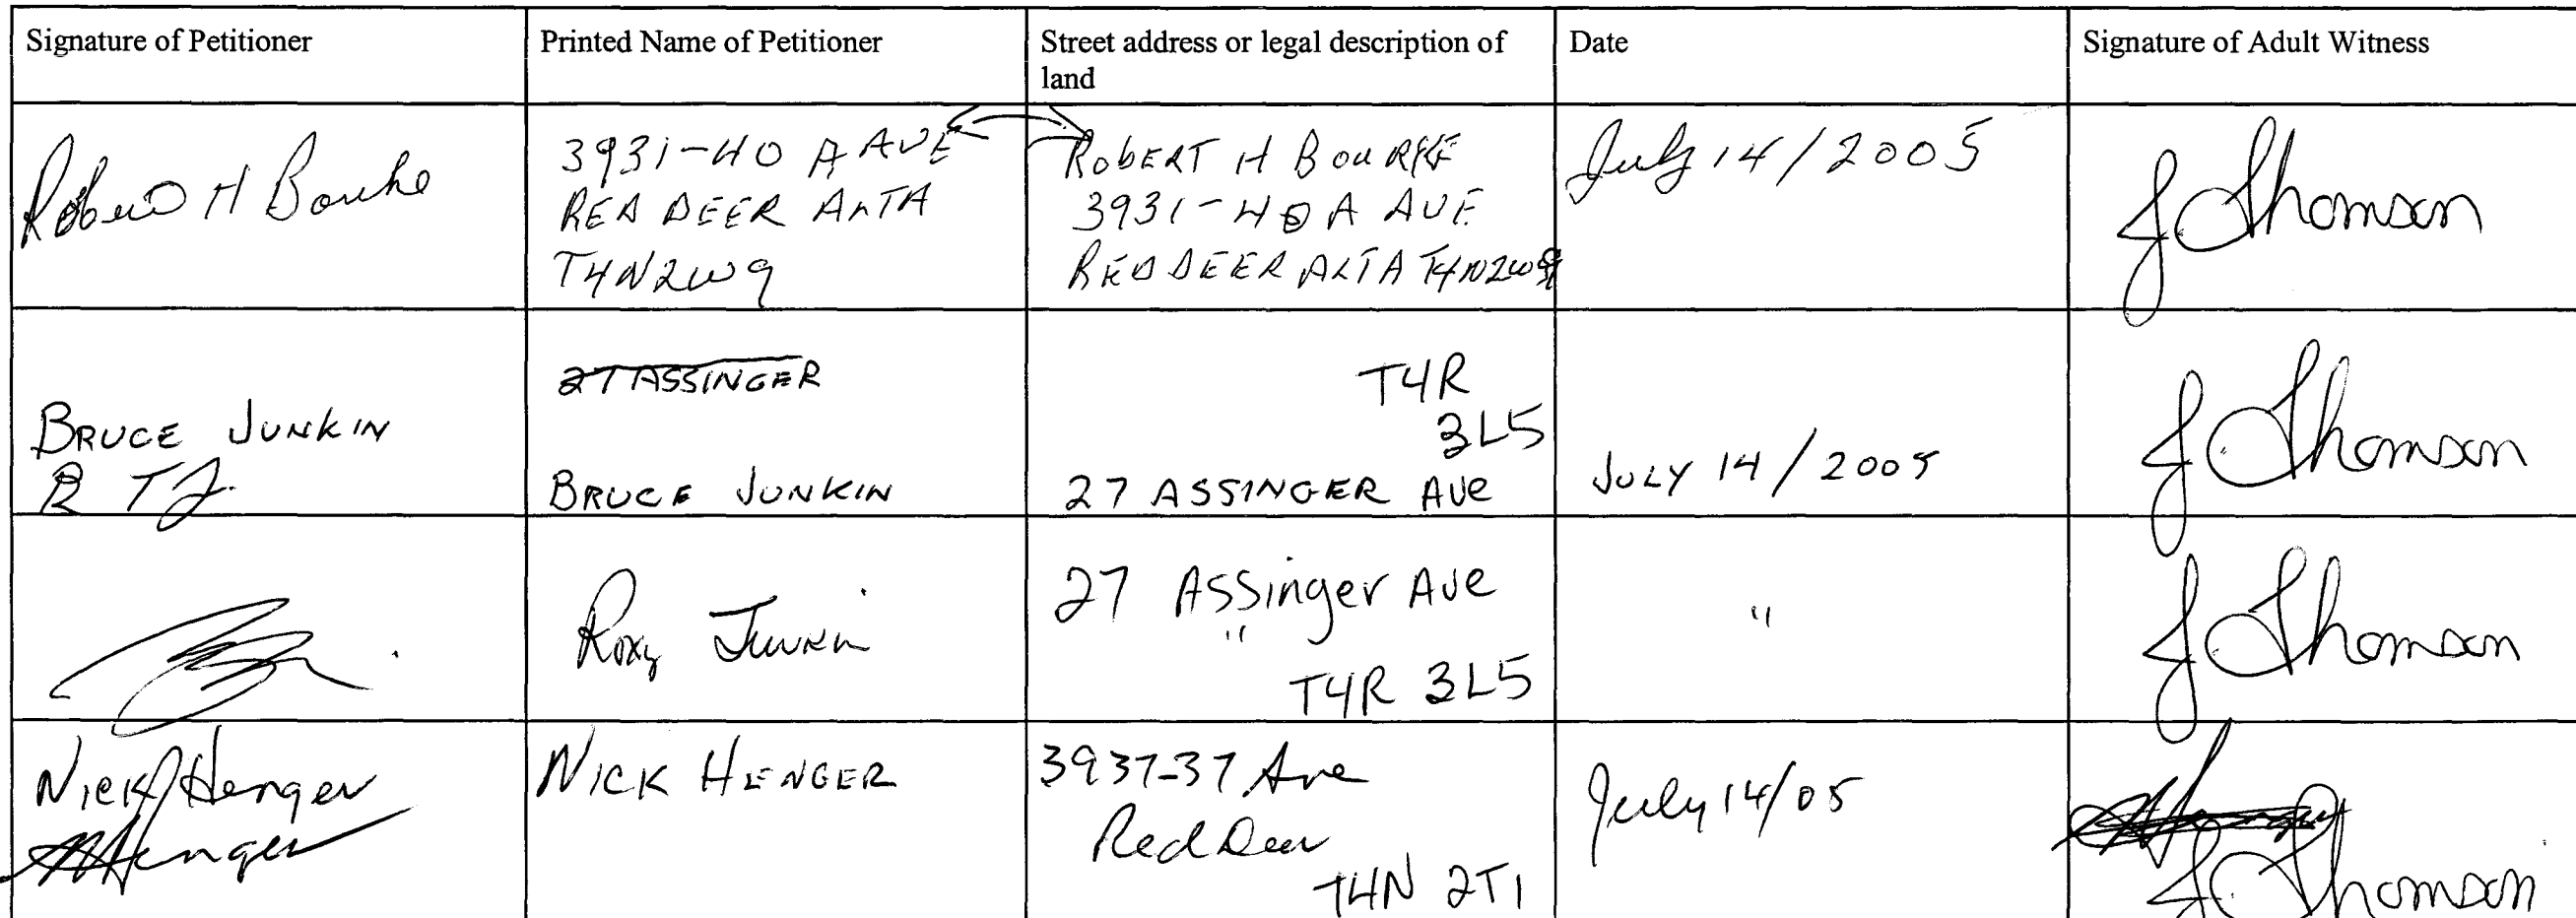 Signature of Petitioner
Printed Name of Petitioner
Street address or legal description of
land
Date
Signature of Adult Witness
Robert H Bourke
3931-40 A AVE
RED DEER ALTA
T4N2W9
ROBERT H BOURKE
3931-40 A AVE
RED DEER ALTA T4N2W9
July 14/2005
J Thomson
BRUCE JUNKIN
B T J
27 ASSINGER
BRUCE JUNKIN
T4R
3L5
27 ASSINGER AVE
JULY 14/2005
J Thomson
Roxy Junkin
27 Assinger Ave
"
T4R 3L5
"
J Thomson
Nick Henger
NHenger
NICK HENGER
3937-37 Ave
Red Deer
T4N 2T1
July 14/05
J Thomson